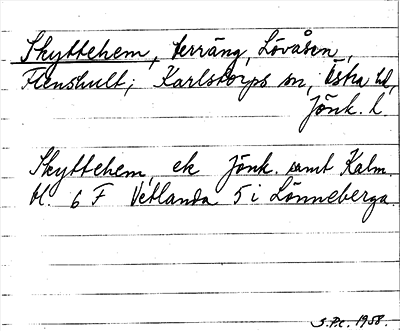 Skyttehem, terräng, Lövåsen,
Flenshult; Karlstorps sn, Östra hd,
Jönk. l.
Skyttehem, ek Jönk. samt Kalm.
bl. 6 F Vetlanda 5 i Lönneberga.
S.P.C. 1958.